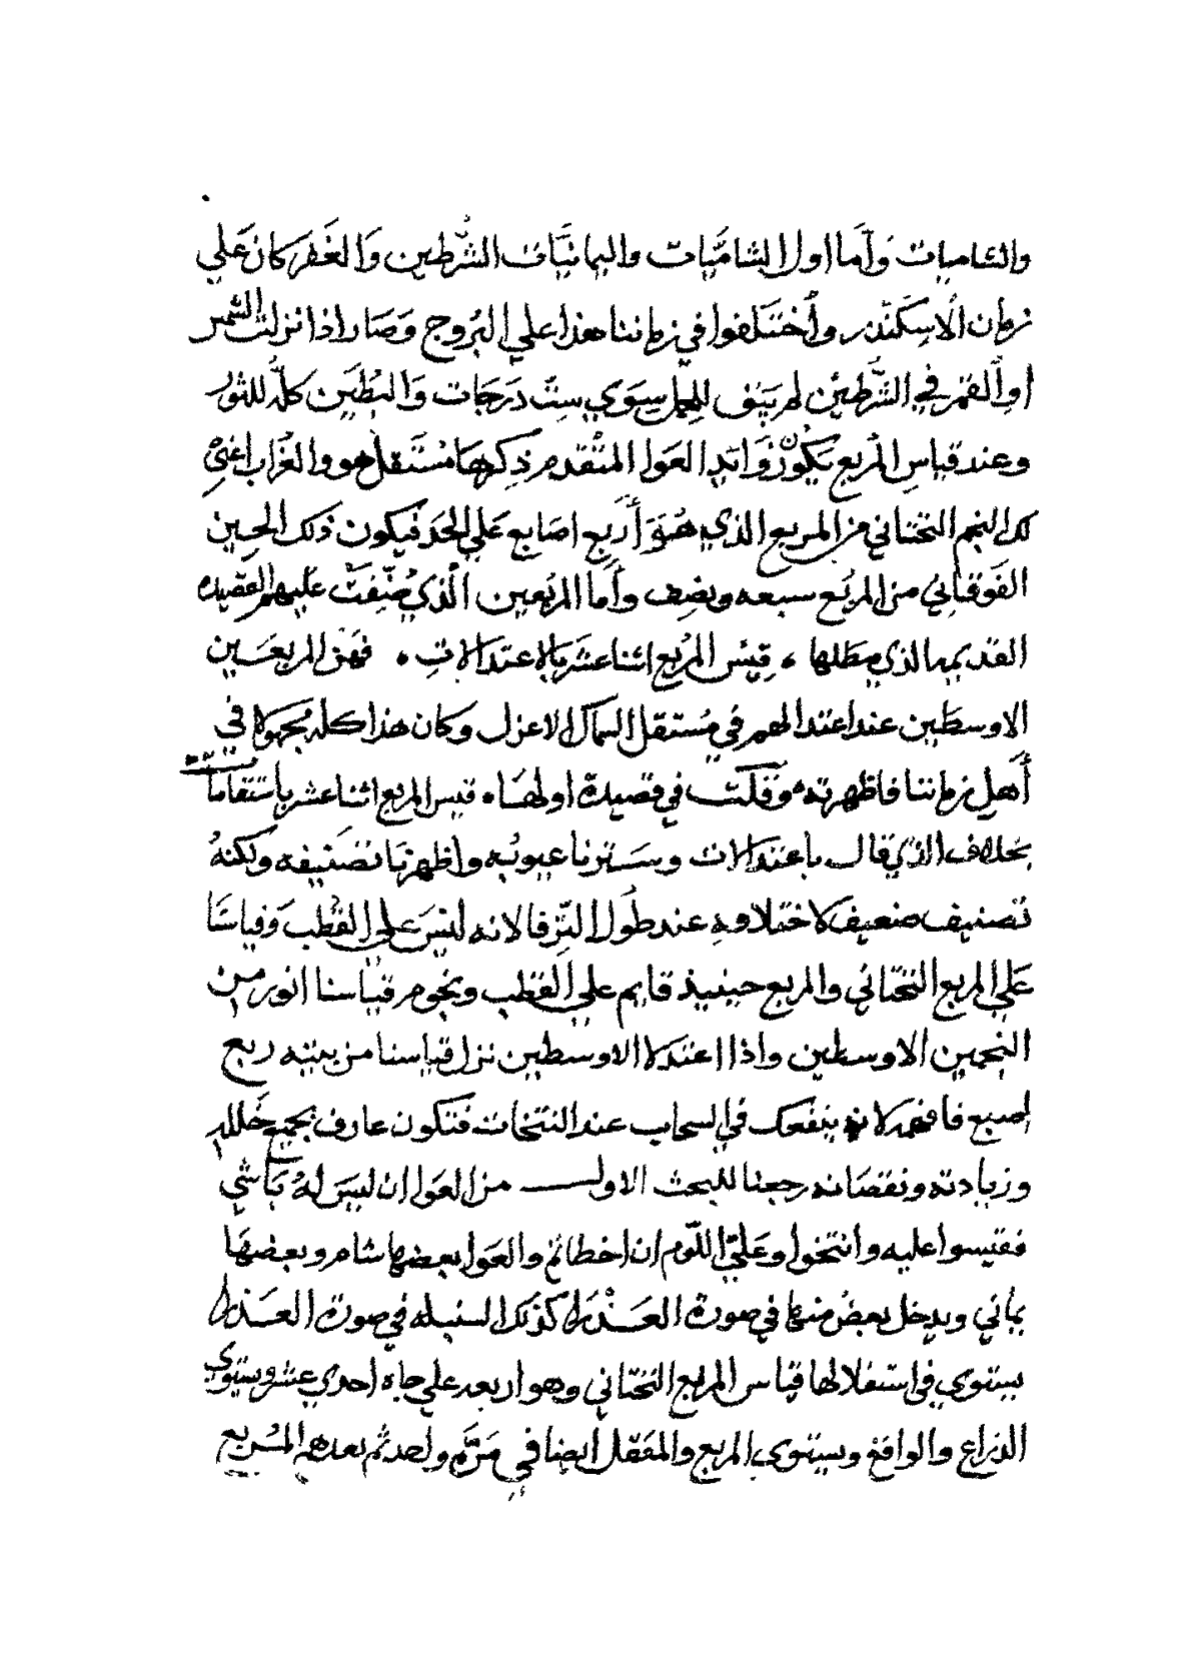 والشاميات وَأما اول الشاميَّات واليمانيَّات الشَّرطين وَالغَفر كان عَلي
زمان الاسكَندر وأختلفوا في زماننا هذا علي البُروج وصَار اذا نزلت الشمس
اوالقمر في الشَّرطين لم يَبق للحمل سِوَي ستّ دَرجَات وَالبُطَين كلّه للثور
وعند قياسِ المربع يكون زوايد العوا المتقدم ذِكرهَا مُستقل هو والغُراب اعني
لك النجم التحتاني من المربع الذي هُوَ أربع اصابع علي الحَد فيكون ذلك الحين
الفَوقاني من المربّع سبعه ونصِف وأما المربّعين الّذي صُنّفتْ عليهم القصيده
القديمه الذي مطلها ، قِيسُ المرُبع اثنا عشر بالاعتدالاتِ ، فهن المربعَين
الاوسطَين عند اعتدالهم في مُستقل السماك الاعزل وكان هذا كله مجهولا في
أهل زماننا فاظهرته وقلتُ في قصيدة اولهَا ، قيس المربع اثنا عشر باستقامات
بخلاف الذي قال باعتدالات وسَترنا عيوبُه واظهرنا تصَنيفه ولكنهُ
تصنيف ضعيف لاختلافهِ عند طُول التِرفا لانه ليسَ علي القُطب وَقياسُنا
عَلي المربع التحتاني والمربع حينيذ قايم علي القطب ونجوم قياسنا انور من
النجمين الاوسطين واذا اعتدلا الاوسطين نزل قياسنا من بيته ربع
اصبع فافهم لانه ينفعك في السحاب عند النتخات فتكون عارف بجميع خَلله
وزيادته ونقصانه رجعنا للبحث الاول من العوا ان ليسَ لهُ بَاشي
فقيسوا عليه وانتخوا وعَليّ اللّوم ان اخطائم والعوا بعضها شام وبعضهَا
يماني ويدخل بعضُ منها في صورة العَذْرا كذلك السنبله في صورة العَذرا
يستوي في استقلالها قياس المربع التحتاني وهو اربعه علي جاه احدي عشر ويستوي
الذراع والواقع ويستوي المربع والمنقل أيضا في مَرّه واحد ثم بعدهم المُربع